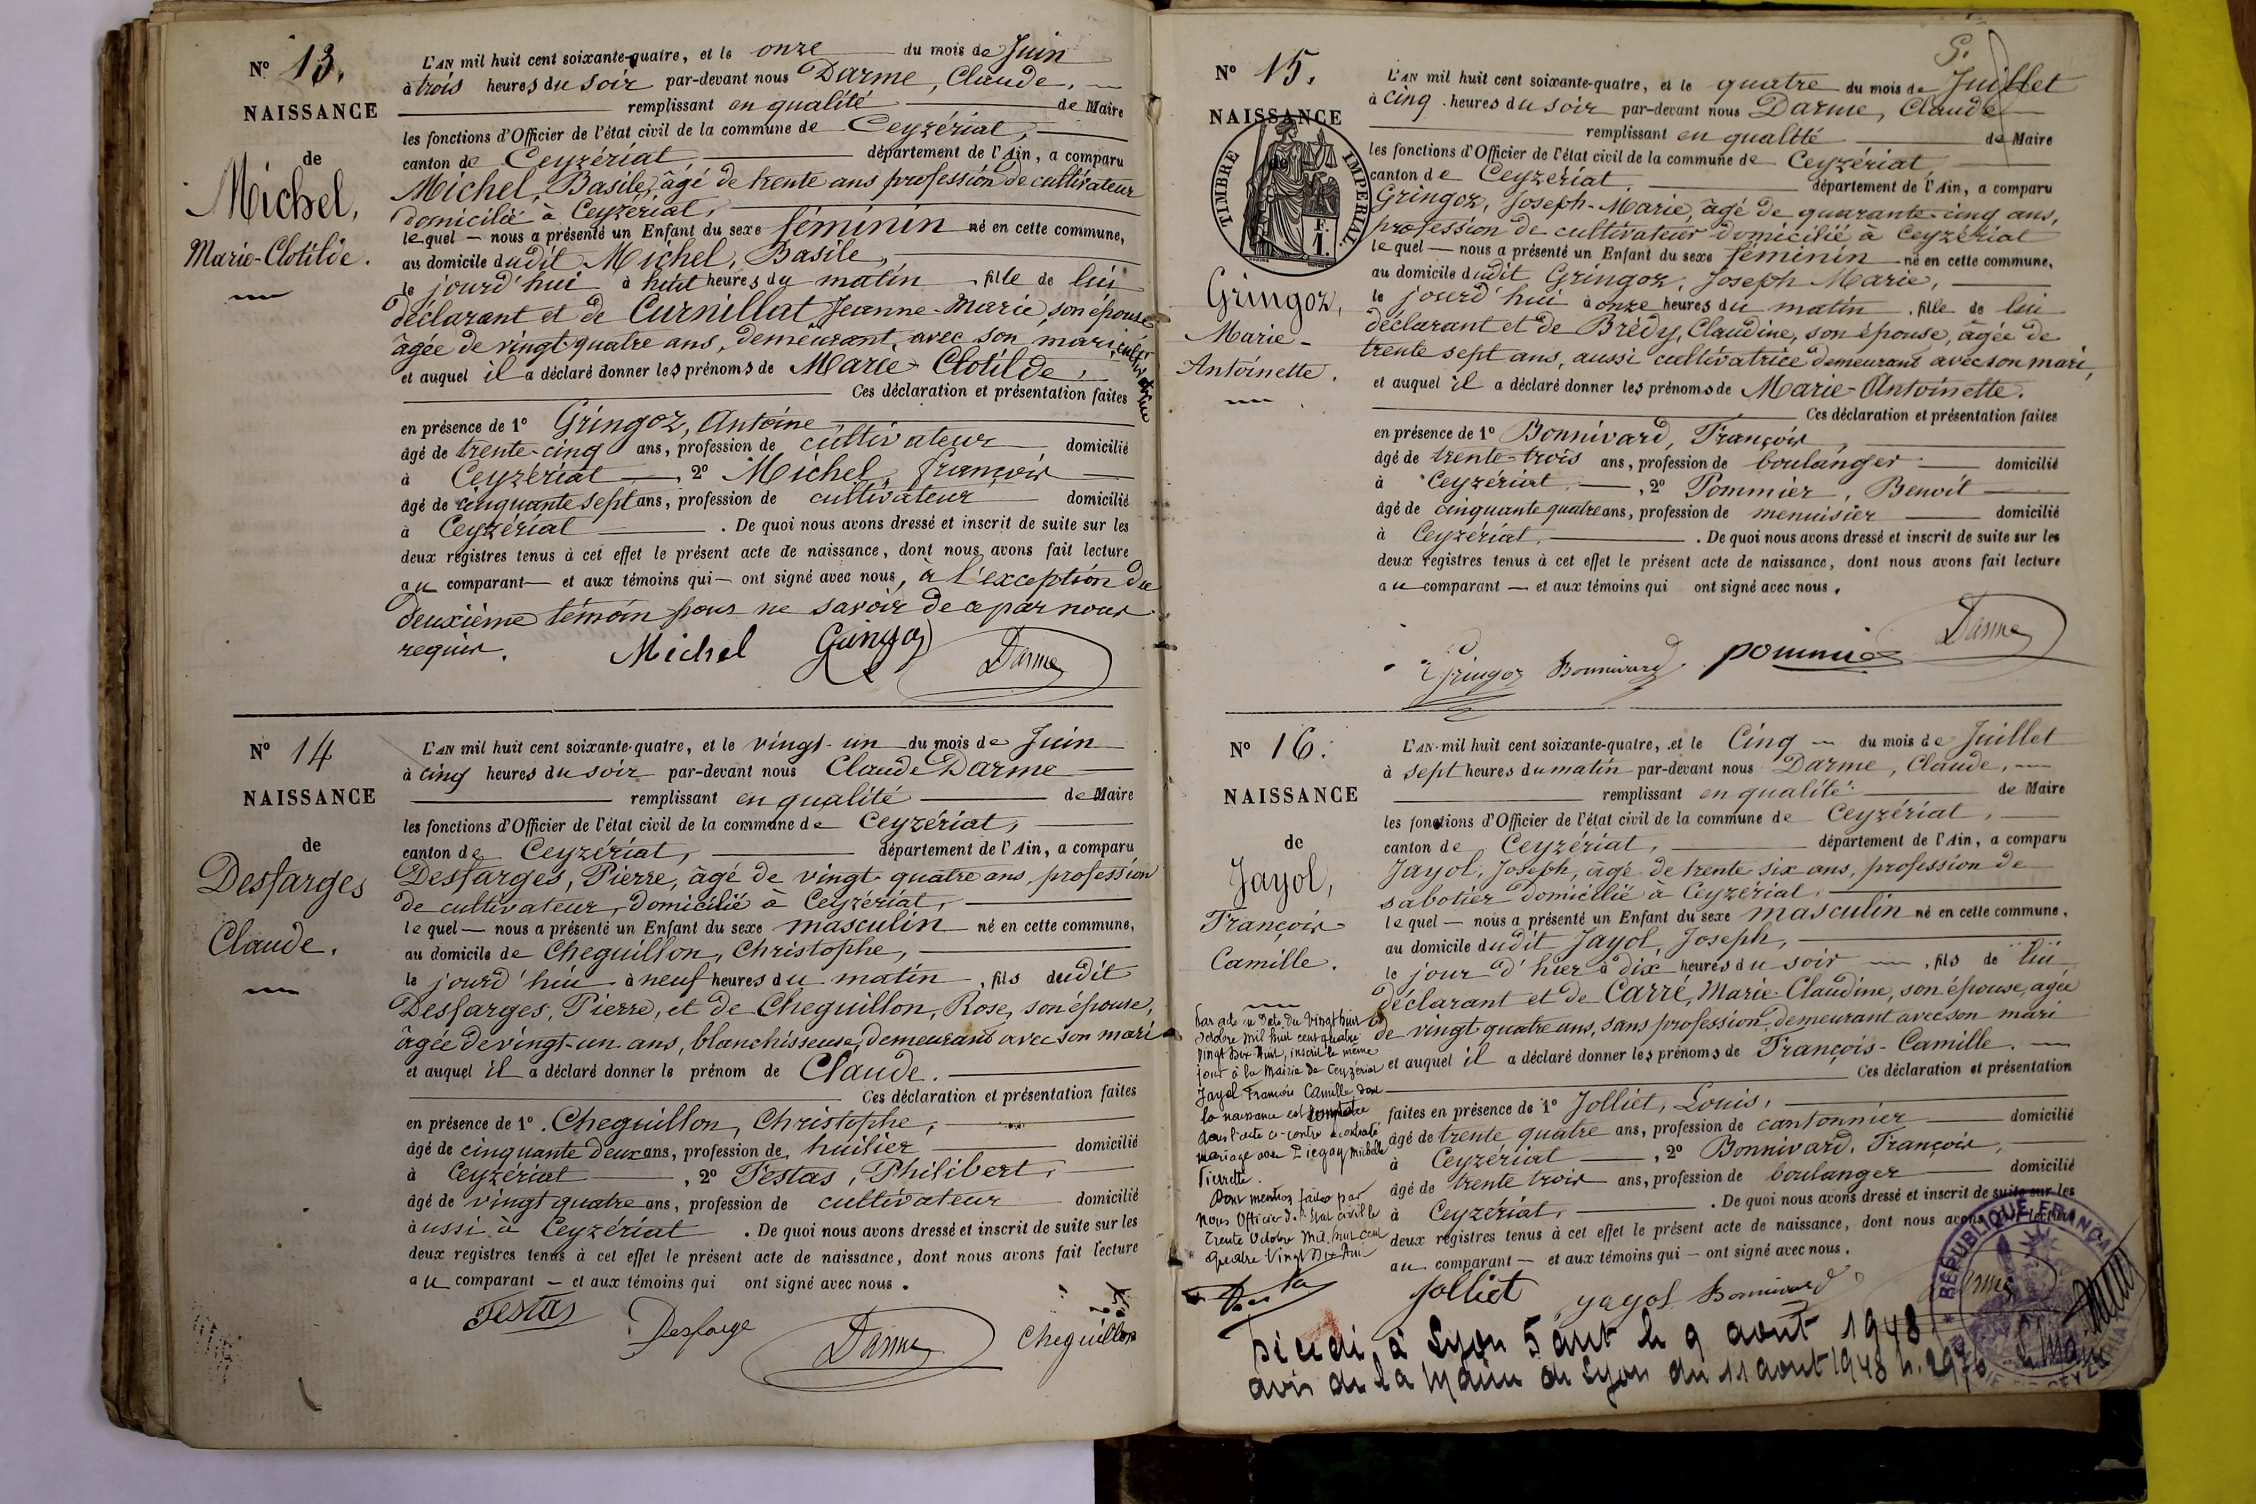 N° 13.
NAISSANCE
de
Michel,
Marie-Clotilde.
L'AN mil huit cent soixante-quatre, et le onze du mois de Juin
à trois heures du soir par-devant nous Darme, Claude,
remplissant en qualité de Maire
les fonctions d'Officier de l'état civil de la commune de Ceyzériat,
canton de Ceyzériat, département de l'Ain, a comparu
Michel, Basile, âgé de trente ans profession de cultivateur
domicilié à Ceyzériat,
lequel — nous a présenté un Enfant du sexe féminin né en cette commune,
au domicile dudit Michel, Basile,
le jourd'hui à huit heures du matin fille de lui
déclarant et de Curnillat Jeanne-Marie, son épouse
âgée de vingt-quatre ans, demeurant avec son mari, cultivatrice
et auquel il a déclaré donner les prénoms de Marie-Clotilde,
Ces déclaration et présentation faites
en présence de 1° Gringoz, Antoine
âgé de trente-cinq ans, profession de cultivateur domicilié
à Ceyzériat, 2° Michel, François
âgé de cinquante sept ans, profession de cultivateur domicilié
à Ceyzériat. De quoi nous avons dressé et inscrit de suite sur les
deux registres tenus à cet effet le présent acte de naissance, dont nous avons fait lecture
au comparant — et aux témoins qui — ont signé avec nous, à l'exception du
deuxième témoin pour ne savoir de ce par nous
requis.
Michel Gringoz Darme
N° 14
NAISSANCE
de
Desfarges
Claude.
L'AN mil huit cent soixante-quatre, et le vingt-un du mois de Juin
à cinq heures du soir par-devant nous Claude Darme
remplissant en qualité de Maire
les fonctions d'Officier de l'état civil de la commune de Ceyzériat,
canton de Ceyzériat, département de l'Ain, a comparu
Desfarges, Pierre, âgé de vingt-quatre ans, profession
de cultivateur, domicilié à Ceyzériat,
lequel — nous a présenté un Enfant du sexe masculin né en cette commune,
au domicile de Cheguillon, Christophe,
le jourd'hui à neuf heures du matin, fils dudit
Desfarges, Pierre, et de Cheguillon, Rose, son épouse,
âgée de vingt-un ans, blanchisseuse, demeurant avec son mari
et auquel il a déclaré donner le prénom de Claude.
Ces déclaration et présentation faites
en présence de 1° Cheguillon, Christophe,
âgé de cinquante deux ans, profession de huilier domicilié
à Ceyzériat, 2° Testas, Philibert,
âgé de vingt quatre ans, profession de cultivateur domicilié
aussi à Ceyzériat. De quoi nous avons dressé et inscrit de suite sur les
deux registres tenus à cet effet le présent acte de naissance, dont nous avons fait lecture
au comparant — et aux témoins qui ont signé avec nous.
Testas Desfarge Darme Cheguillon
N° 15.
NAISSANCE
de
TIMBRE IMPÉRIAL.
F. 1.
Gringoz,
Marie-
Antoinette.
L'AN mil huit cent soixante-quatre, et le quatre du mois de Juillet
à cinq heures du soir par-devant nous Darme, Claude
remplissant en qualité de Maire
les fonctions d'Officier de l'état civil de la commune de Ceyzériat,
canton de Ceyzériat. département de l'Ain, a comparu
Gringoz, Joseph-Marie, âgé de quarante-cinq ans,
profession de cultivateur domicilié à Ceyzériat
lequel — nous a présenté un Enfant du sexe féminin né en cette commune,
au domicile dudit Gringoz, Joseph Marie,
le jourd'hui à onze heures du matin. fille de lui
déclarant et de Brédy, Claudine, son épouse, âgée de
trente sept ans, aussi cultivatrice demeurant avec son mari,
et auquel il a déclaré donner les prénoms de Marie-Antoinette.
Ces déclaration et présentation faites
en présence de 1° Bonnivard, François,
âgé de trente-trois ans, profession de boulanger domicilié
à Ceyzériat, 2° Pommier, Benoît
âgé de cinquante quatre ans, profession de menuisier domicilié
à Ceyzériat. De quoi nous avons dressé et inscrit de suite sur les
deux registres tenus à cet effet le présent acte de naissance, dont nous avons fait lecture
au comparant — et aux témoins qui ont signé avec nous.
Gringoz Bonnivard pommier Darme
N° 16.
NAISSANCE
de
Jayol,
François
Camille.
L'AN mil huit cent soixante-quatre, et le Cinq du mois de Juillet
à sept heures du matin par-devant nous Darme, Claude,
remplissant en qualité de Maire
les fonctions d'Officier de l'état civil de la commune de Ceyzériat,
canton de Ceyzériat, département de l'Ain, a comparu
Jayol, Joseph, âgé de trente six ans, profession de
sabotier domicilié à Ceyzériat.
lequel — nous a présenté un Enfant du sexe masculin né en cette commune,
au domicile dudit Jayol, Joseph,
le jour d'hier à dix heures du soir, fils de lui
déclarant et de Carré, Marie-Claudine, son épouse, agée
de vingt-quatre ans, sans profession, demeurant avec son mari
et auquel il a déclaré donner les prénoms de François-Camille.
Ces déclaration et présentation
faites en présence de 1° Jolliet, Louis,
âgé de trente quatre ans, profession de cantonnier domicilié
à Ceyzériat, 2° Bonnivard, François,
âgé de trente trois ans, profession de boulanger domicilié
à Ceyzériat. De quoi nous avons dressé et inscrit de suite sur les
deux registres tenus à cet effet le présent acte de naissance, dont nous avons fait lecture
au comparant — et aux témoins qui — ont signé avec nous.
Par acte en date du vingt huit
Octobre mil huit cent quatre
vingt dix huit, inscrit le même
jour à la Mairie de Ceyzériat
Jayol François Camille dont
la naissance est
dans l'acte ci-contre a contracté
mariage avec Piegay
Pierrette.
Dont mention faite par
Nous Officier de l'Etat civil le
Trente Octobre mil huit cent
quatre vingt dix huit
Jolliet Jayol Bonnivard Darme
Décédé à Lyon 5 art le 9 août 1948
avis de la Mairie de Lyon du 11 aout 1948 n. 2976
Le Maire
RÉPUBLIQUE FRANÇAISE